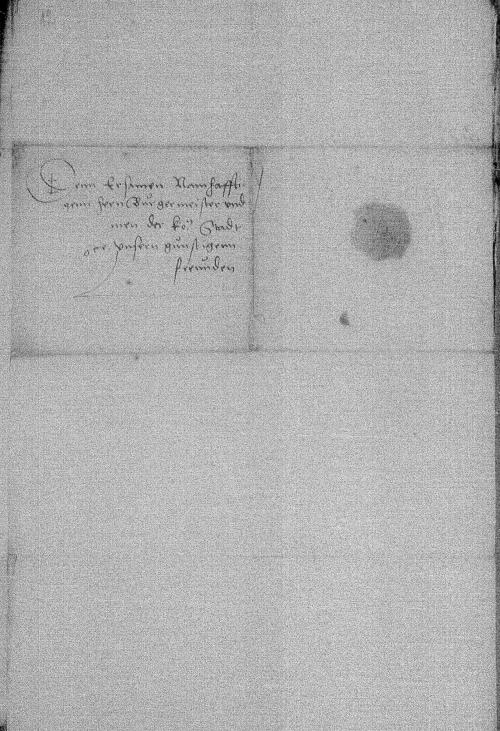 Denn Ersamen Namhafft
genn hern Burgermeister vnd
men der ko: Stadt
vnsern gunstigenn
freunden